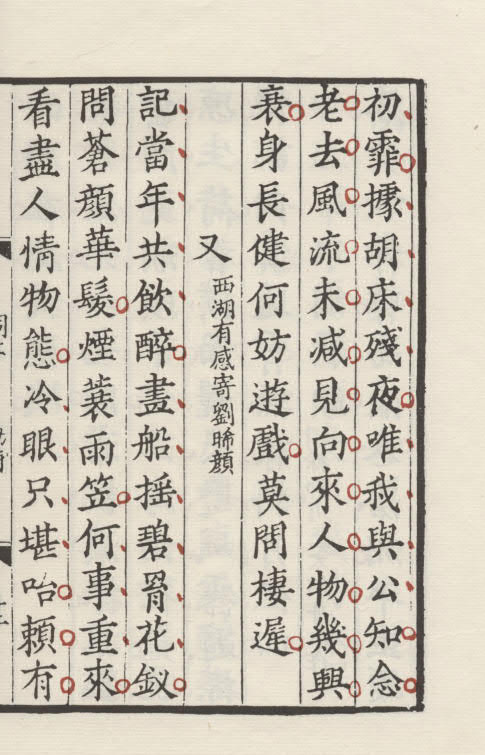 初霏據胡床殘夜唯我與公知念
老去風流未减見向來人物幾興
衰身長健何妨遊戲莫問棲遲
又西湖有感寄劉晞顔
記當年共飲醉畫船摇碧罥花釵
問蒼顔華髮煙蓑雨笠何事重來
看盡人情物態冷眼只堪咍頼有